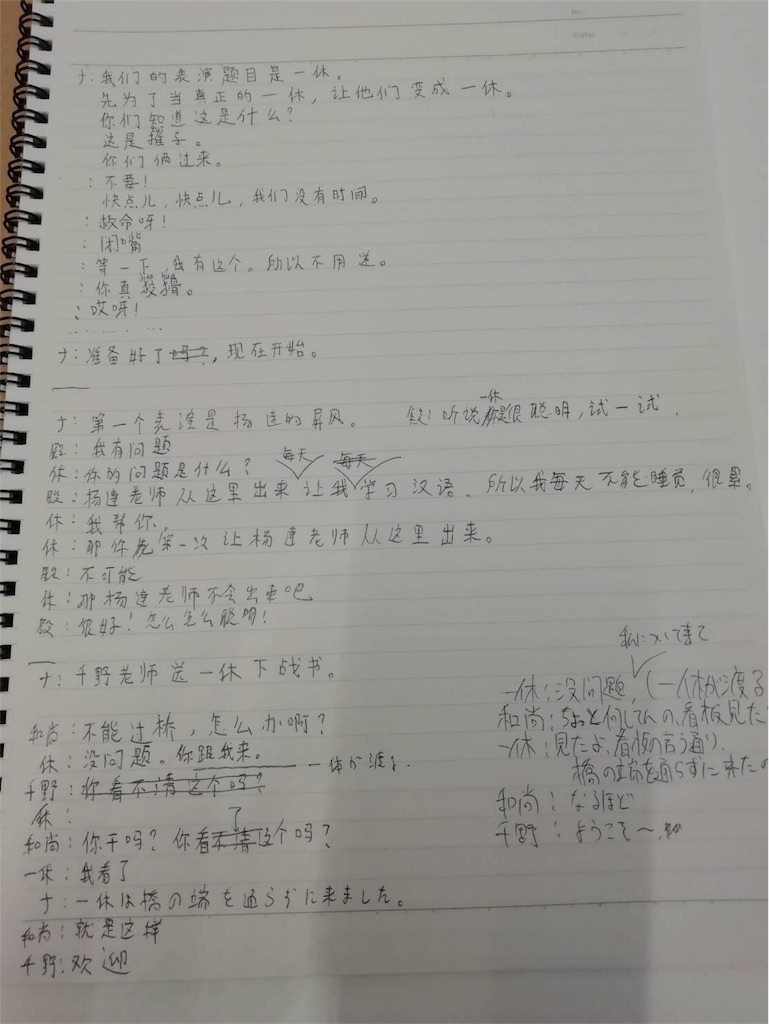 No.
Date
ナ:我们的表演题目是一休。
先为了当真正的一休,让他们变成一休。
你们知道这是什么?
这是擢子。
你们俩过来。
:不要!
快点儿,快点儿,我们没有时间。
:救命呀!
:闭嘴
:等一下,我有这个。所以不用送。
:你真
:哎呀!
ナ:准备好了吗?,现在开始。
ナ:第一个表演是杨逵的屏风。 殿:听说一休很聪明,试一试.
殿:我有问题
休:你的问题是什么? 每天 每天
殿:杨逵老师从这里出来让我学习汉语。所以我每天不能睡觉,很累。
休:我帮你。
休:那你先第一次让杨逵老师从这里出来。
殿:不可能
休:那杨逵老师不会出来吧
殿:很好!怎么怎么聪明!
ナ:千野老师送一休下战书。
和尚:不能过桥,怎么办啊?
休:没问题。你跟我来。 一休が渡る.
千野:你看不清这个吗?
休:
和尚:你干吗?你看不清了这个吗?
一休:我看了
ナ:一休は橋の端を通らずに来ました。
和尚:就是这样
千野:欢迎
私について来て
一休:没问题,(一休が渡る
和尚:ちょっと何してんの、看板見た
一休:見たよ、看板の言う通り、
橋の端を通らずに来たの
和尚:なるほど
千野:ようこそ〜